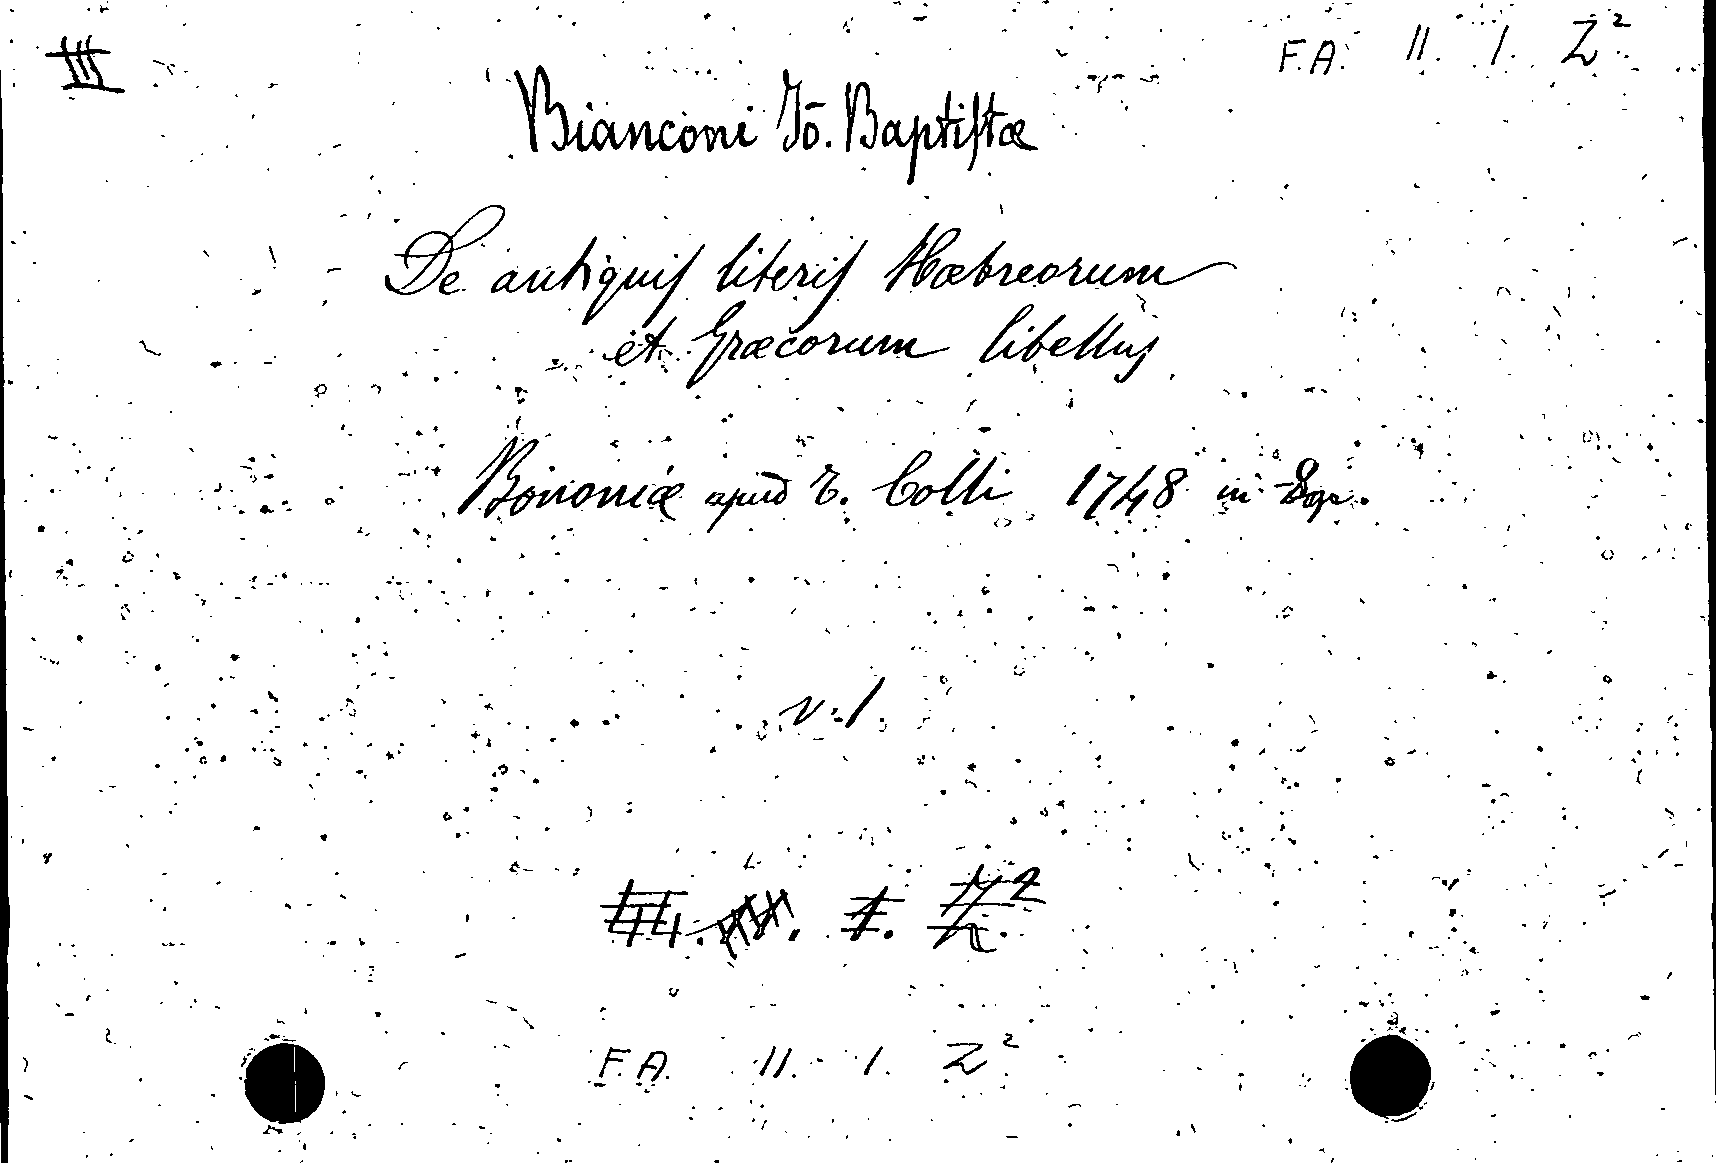 III
F.A. II. I. Z²
Bianconi Jō. Baptistæ
De antiquis literis Hæbreorum
et Græcorum libellus
Bononiæ apud T. Colli 1748 in 8gr.
v. 1
F.A. II. I. Z²